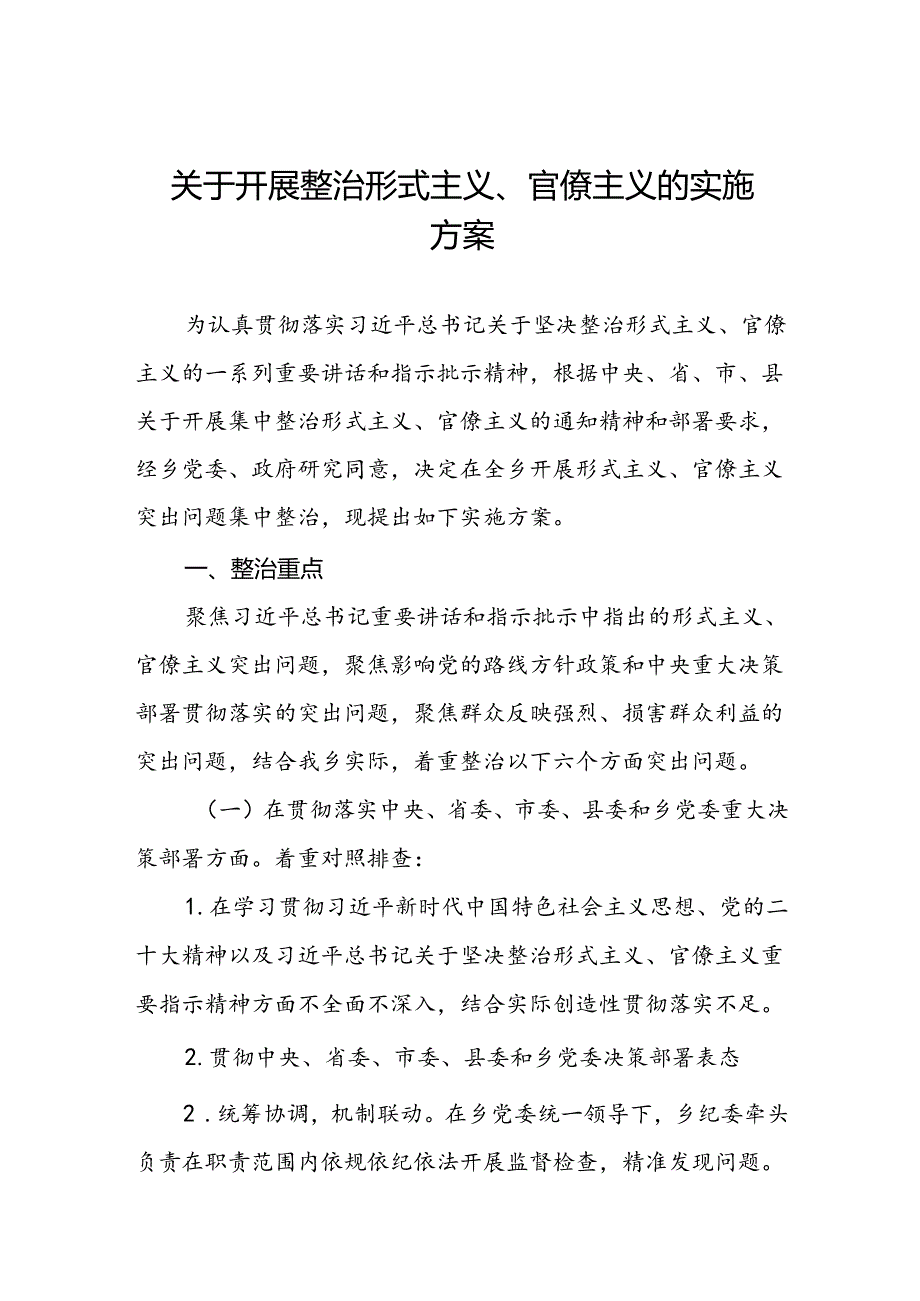 关于开展整治形式主义、官僚主义的实施
方案
为认真贯彻落实习近平总书记关于坚决整治形式主义、官僚
主义的一系列重要讲话和指示批示精神，根据中央、省、市、县
关于开展集中整治形式主义、官僚主义的通知精神和部署要求，
经乡党委、政府研究同意，决定在全乡开展形式主义、官僚主义
突出问题集中整治，现提出如下实施方案。
一、整治重点
聚焦习近平总书记重要讲话和指示批示中指出的形式主义、
官僚主义突出问题，聚焦影响党的路线方针政策和中央重大决策
部署贯彻落实的突出问题，聚焦群众反映强烈、损害群众利益的
突出问题，结合我乡实际，着重整治以下六个方面突出问题。
（一）在贯彻落实中央、省委、市委、县委和乡党委重大决
策部署方面。着重对照排查：
1.在学习贯彻习近平新时代中国特色社会主义思想、党的二
十大精神以及习近平总书记关于坚决整治形式主义、官僚主义重
要指示精神方面不全面不深入，结合实际创造性贯彻落实不足。
2.贯彻中央、省委、市委、县委和乡党委决策部署表态
2 .统筹协调，机制联动。在乡党委统一领导下，乡纪委牵头
负责在职责范围内依规依纪依法开展监督检查，精准发现问题。